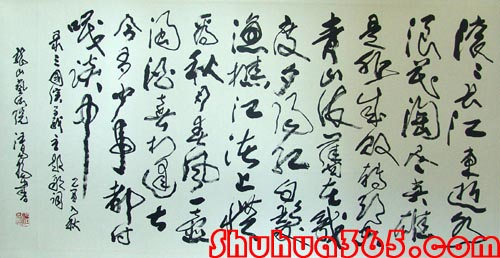 滚々长江东逝水
浪花淘尽英雄
是非成敗转头空
青山依舊在幾
度夕阳红白髮
渔樵江渚上惯
看秋月春风一壶
浊酒喜相逢古
今多少事都付
笑谈中
乙酉之秋
录三國演义主题歌词
山藝术院
书
Shuhua365.com